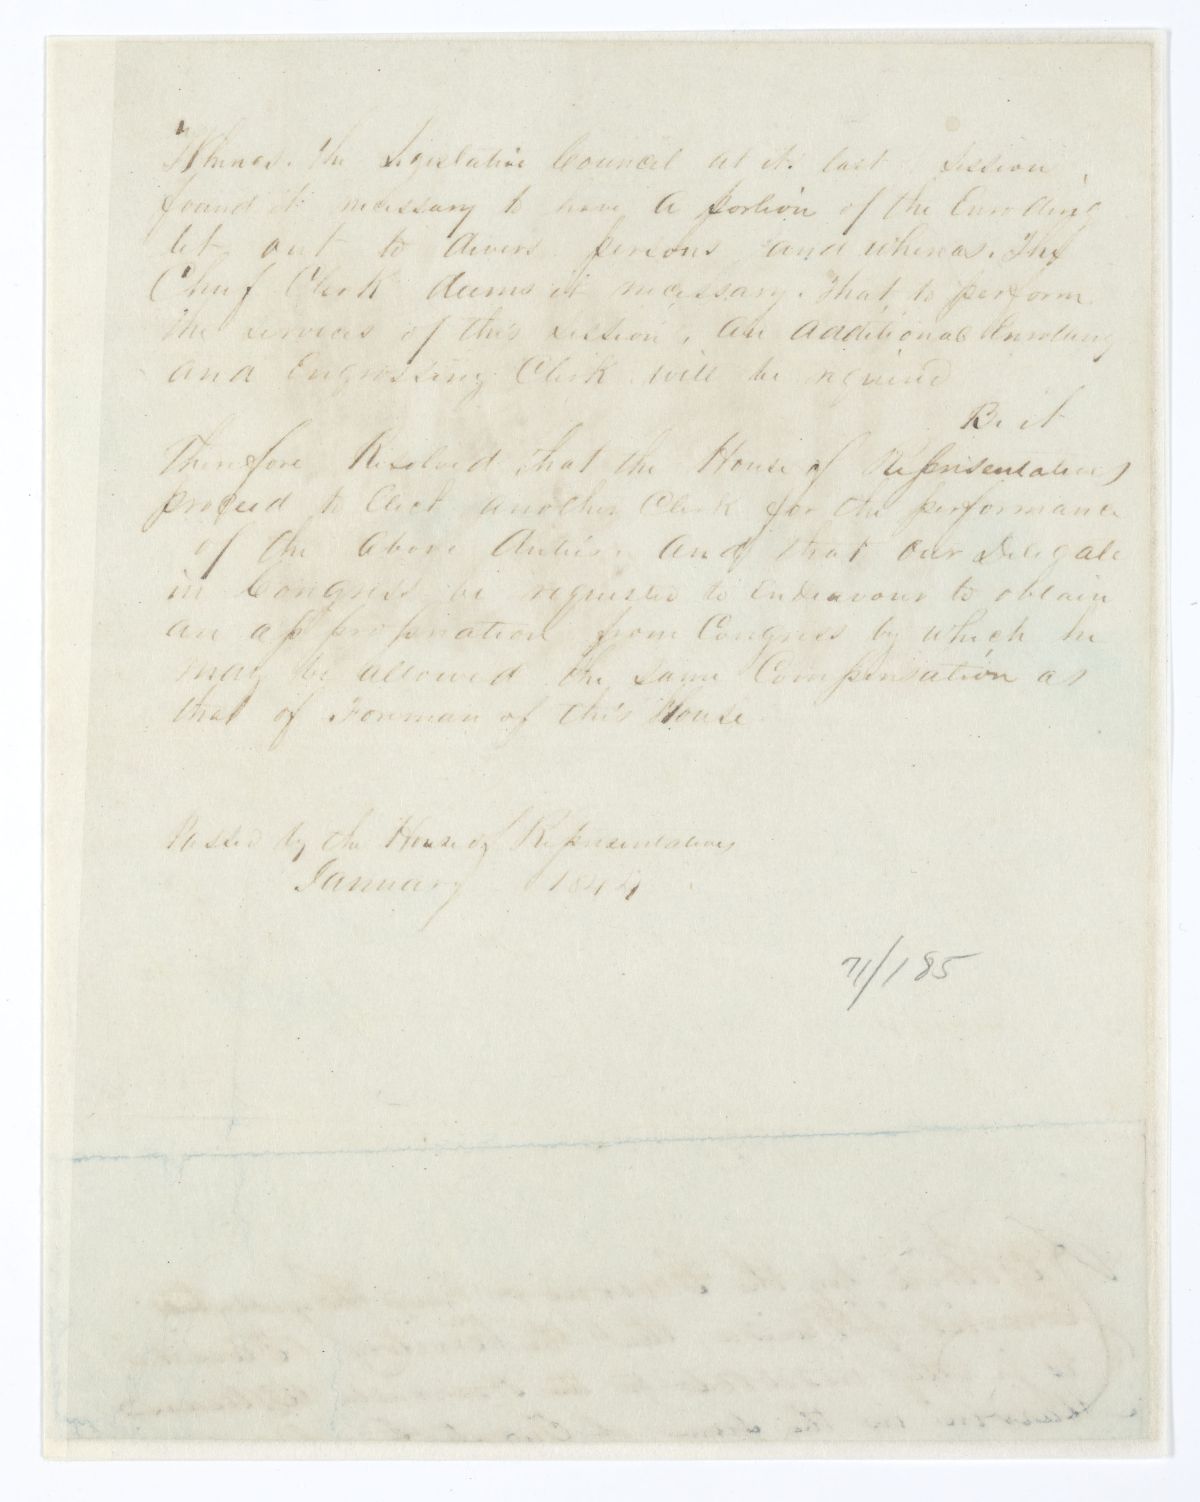 Whereas. the Legislative Council at its last session,
found it necessary to have a portion of the Enrolling
let out to divers persons and whereas. The
Chief Clerk deems it necessary. that to perform
the services of this Session, an additional Enrolling
and Engrossing Clerk will be required
Be it
Therefore Resolved that the House of Representatives
proceed to Elect another Clerk for the performance
of the above duties and that our Delegate
in Congress be requested to Endeavour to obtain
an appropriation from Congress by which he
may be allowed the same Compensation as
that of Foreman of this House
Passed by the House of Representatives
January 1844
71/185